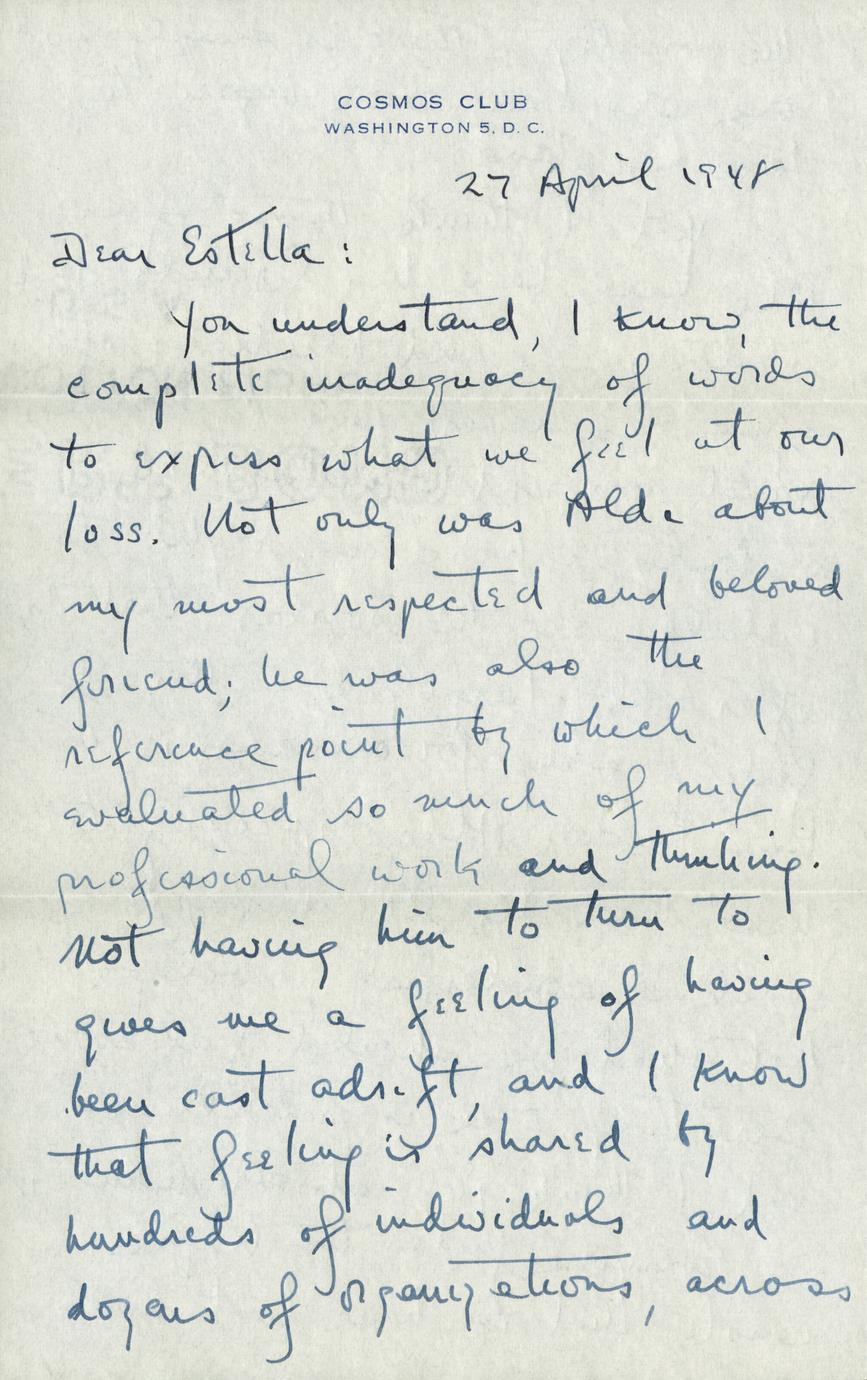 COSMOS CLUB
WASHINGTON 5, D. C.
27 April 1948
Dear Estella:
You understand, I know, the
complete inadequacy of words
to express what we feel at our
loss. Not only was Aldo about
my most respected and beloved
friend; he was also the
reference point by which I
evaluated so much of my
professional work and thinking.
Not having him to turn to
gives me a feeling of having
been cast adrift, and I know
that feeling is shared by
hundreds of individuals and
dozens of organizations, across